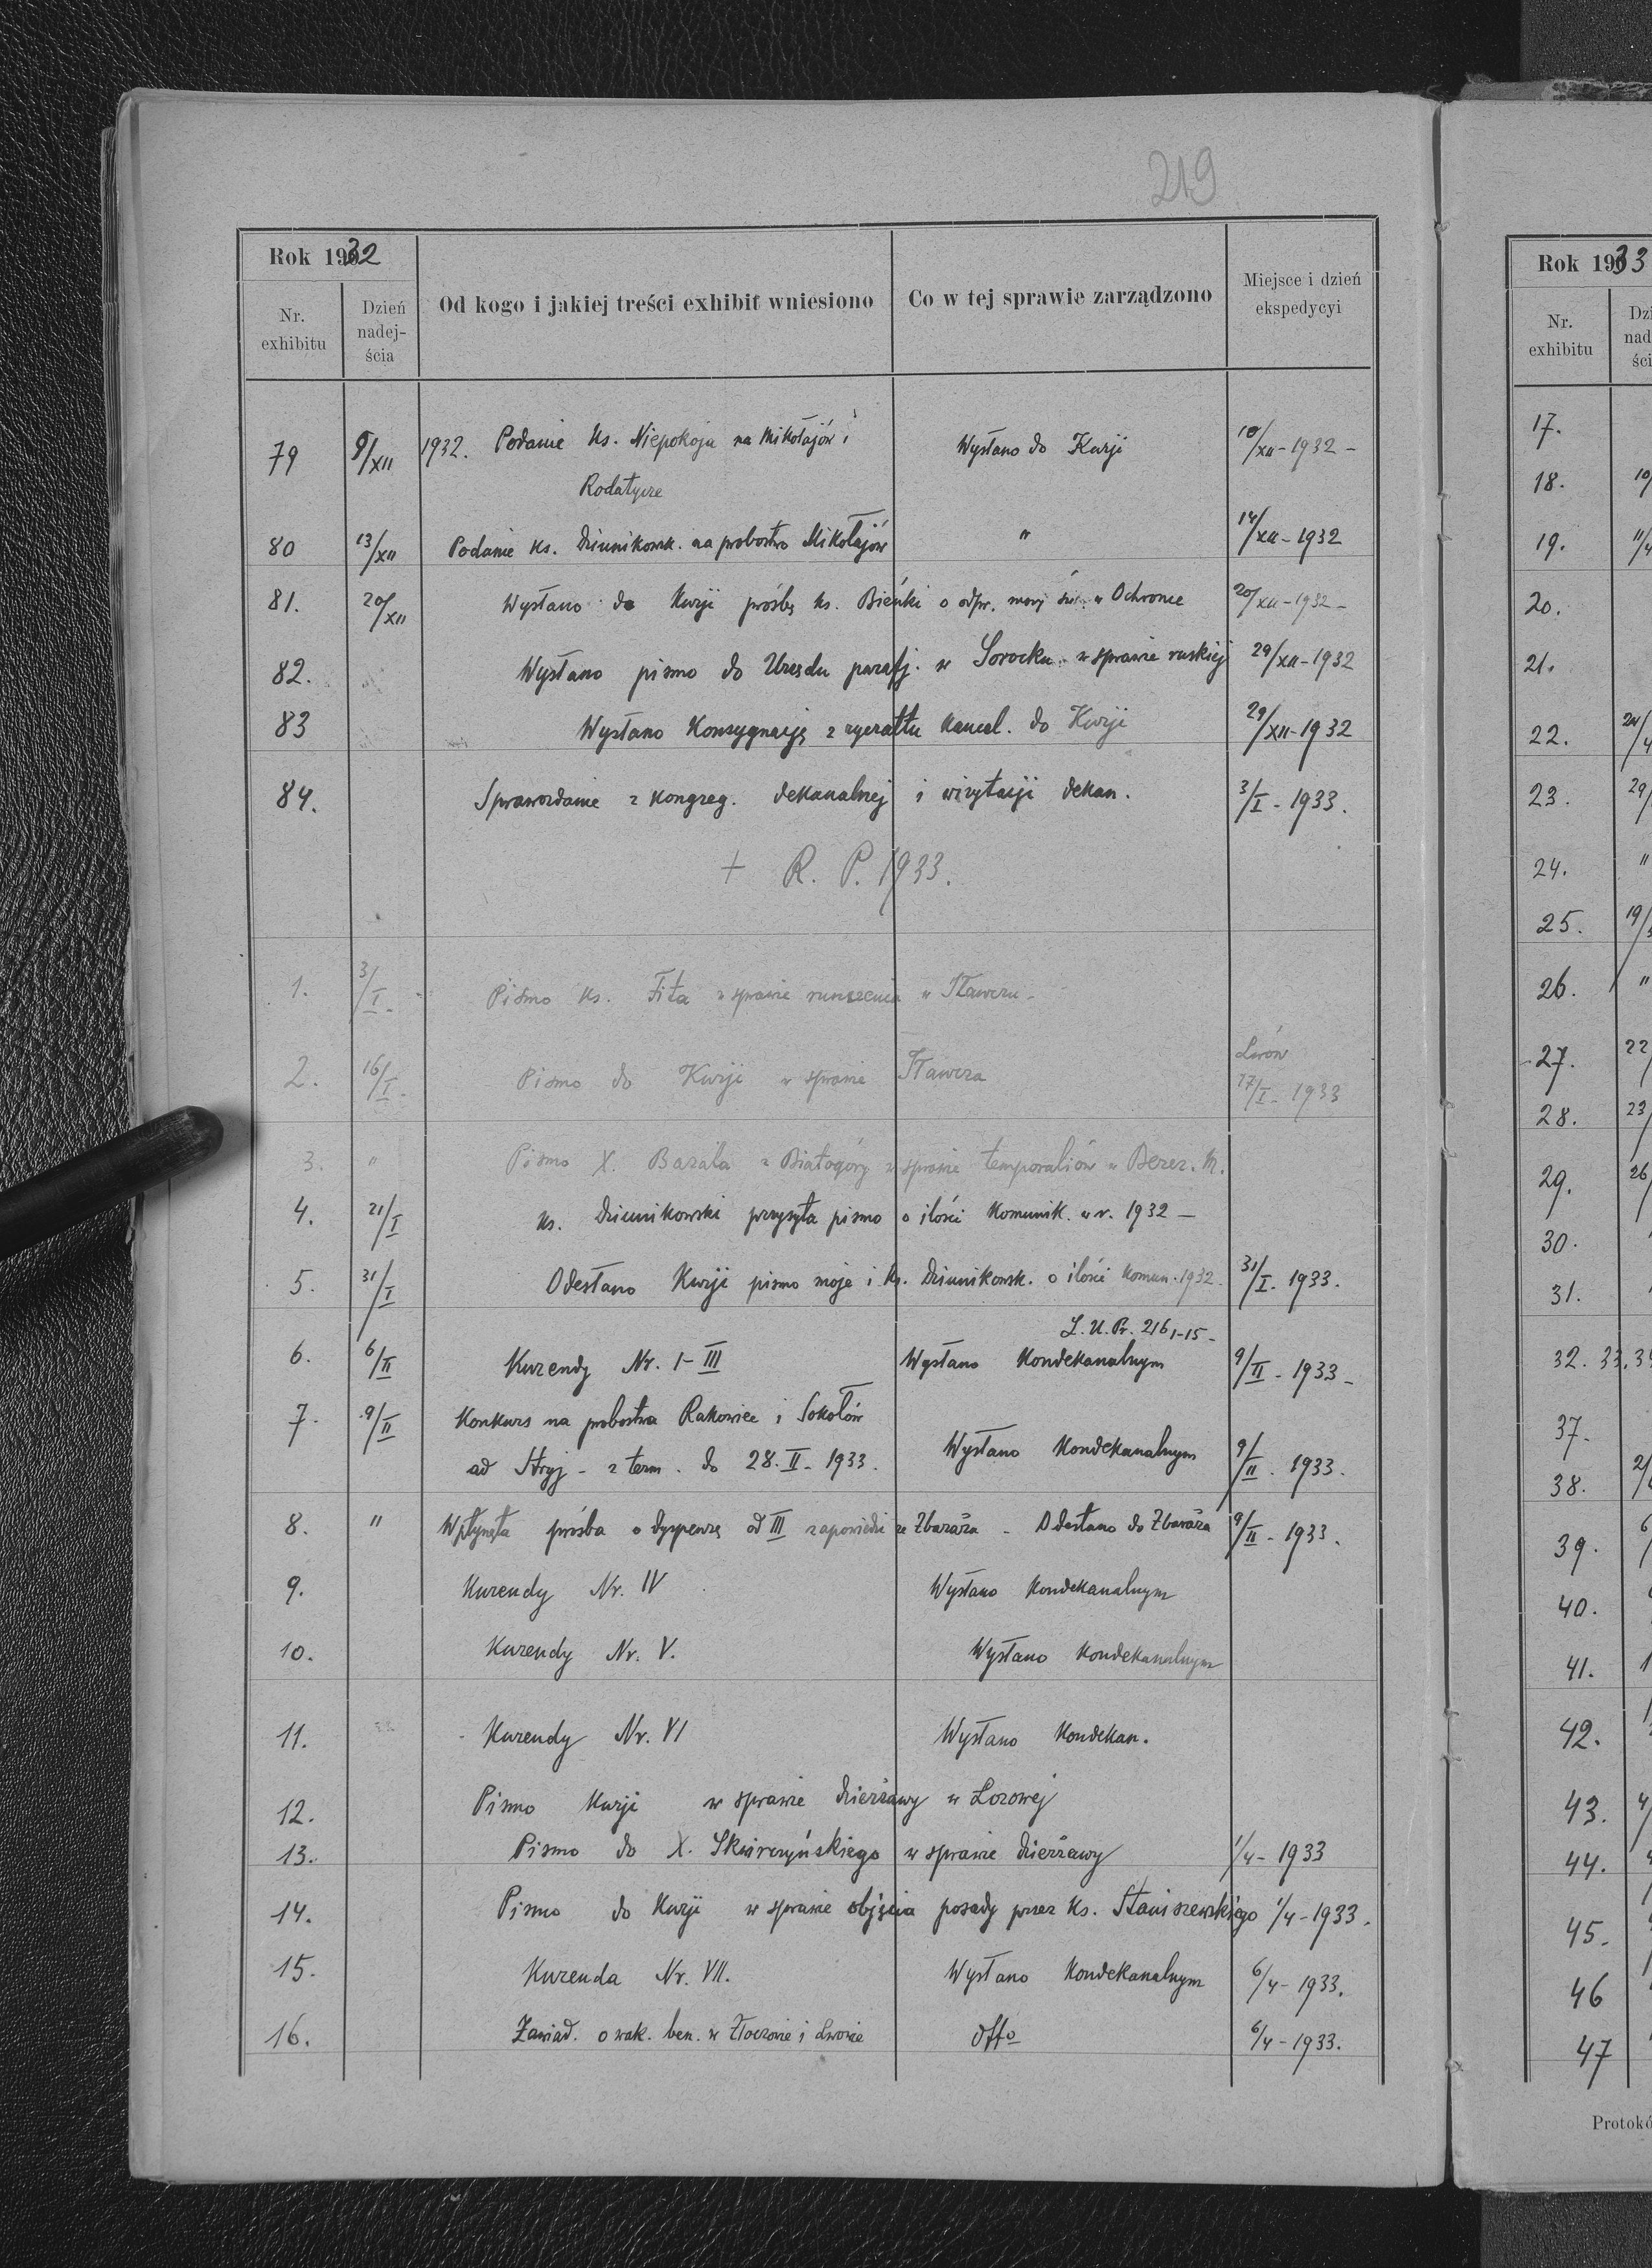 219
Rok 1932
Nr. exhibitu
Dzień nadej-ścia
Od kogo i jakiej treści exhibit wniesiono
Co w tej sprawie zarządzono
Miejsce i dzień ekspedycyi
79 9/XII 1932. Podanie Ks. Niepokoja na Mikołajów i Wysłano do Kurji 10/XII - 1932 -
Rodatycze
80 13/XII Podanie Ks. Dziunikowsk. na probostwo Mikołajów " 14/XII - 1932
81. 20/XII Wysłano do Kurji prośbę ks. Bieńki o odpr. mszy św. w Ochronce 20/XII - 1932 -
82. Wysłano pismo do Urzędu parafj. w Sorocku w sprawie ruskiej 29/XII - 1932
83 Wysłano Konsygnację z ryczałtu Kancel. do Kurji 29/XII - 1932
84. Sprawozdanie z Kongreg. dekanalnej i wizytacji dekan. 3/I - 1933.
+ R. P. 1933.
1. 3/I - Pismo Ks. Fiła w sprawie w Iławczu -
2. 16/I - Pismo do Kurji w sprawie Iławcza Lwów
17/I - 1933
3. " Pismo X. Bazala z Białogóry w sprawie temporaliów w Berez. M.
4. 21/I Ks. Dziunikowski przysyła pismo o ilości Komunik. w r. 1932 -
5. 31/I Odesłano Kurji pismo moje i Ks. Dziunikowsk. o ilości Komun. 1932 - 31/I. 1933.
L. U. Pr. 216 1-15 -
6. 6/II Kurendy Nr. I - III Wysłano Kondekanalnym 9/II - 1933 -
7. 9/II Konkurs na probostwa Rakowiec i Sokołów
ad Stryj - z term. do 28. II - 1933. Wysłano Kondekanalnym 9/II. 1933.
8. " Wpłynęła prośba o dyspensę od III zapowiedzi ze Zbaraża - Odesłano do Zbaraża 9/II - 1933.
9. Kurendy Nr. IV Wysłano Kondekanalnym
10. Kurendy Nr. V. Wysłano Kondekanalnym
11. Kurendy Nr. VI Wysłano Kondekan.
12. Pismo Kurji w sprawie dzierżawy w Łozowej
13. Pismo do X. Skwirczyńskiego w sprawie dzierżawy 1/4 - 1933
14. Pismo do Kurji w sprawie objęcia posady przez Ks. Staniszewskiego 1/4 - 1933.
15. Kurenda Nr. VII. Wysłano Kondekanalnym 6/4 - 1933.
16. Zawiad. o wak. ben. w Złoczowie i Lwowie otto 6/4 - 1933.
Rok 1933
Nr. exhibitu
Dzi
nad
ści
17.
18. 10/
19. 11/4
20.
21.
22. 24/4
23. 29/
24. "
25. 19/5
26. "
27. 22/
28. 23/
29. 26/
30.
31.
32. 33. 34
37.
38. 2/
39. 6/
40.
41. 1
42.
43. 4/
44.
45.
46
47
Protokó